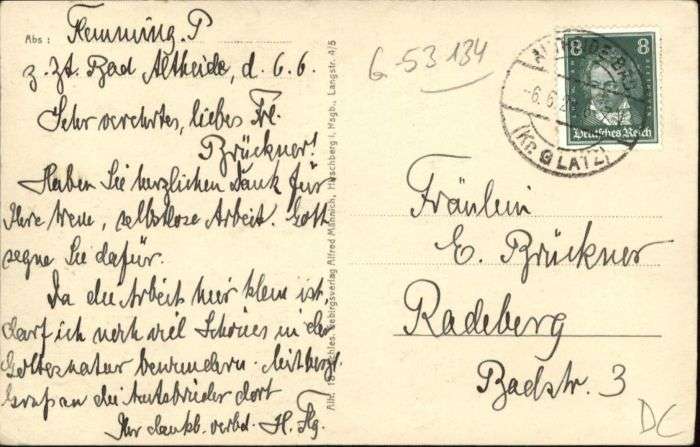 Abs: Flemming. P
z. Zt. Bad Altheide, d. 6.6.
Sehr verehrtes, liebes Frl.
Brückner!
Haben Sie herzlichen Dank für
Ihre treue, selbstlose Arbeit. Gott
segne Sie dafür.
Da die Arbeit hier klein ist
darf ich noch viel Schönes in der
Gottesnatur bewundern. Mit herzl.
Gruß an die Amtsbrüder dort
Ihr dankb. verbd. H. Flg.
Schles. Gebirgsverlag Alfred Münnich, Hirschberg i. Rsgb., Langstr. 4/5
G-53 134
ALTHEIDE-BAD
-6.6.2
(KR. GLATZ)
8 8
Deutsches Reich
Fräulein
E. Brückner
Radeberg
Badstr. 3
DC